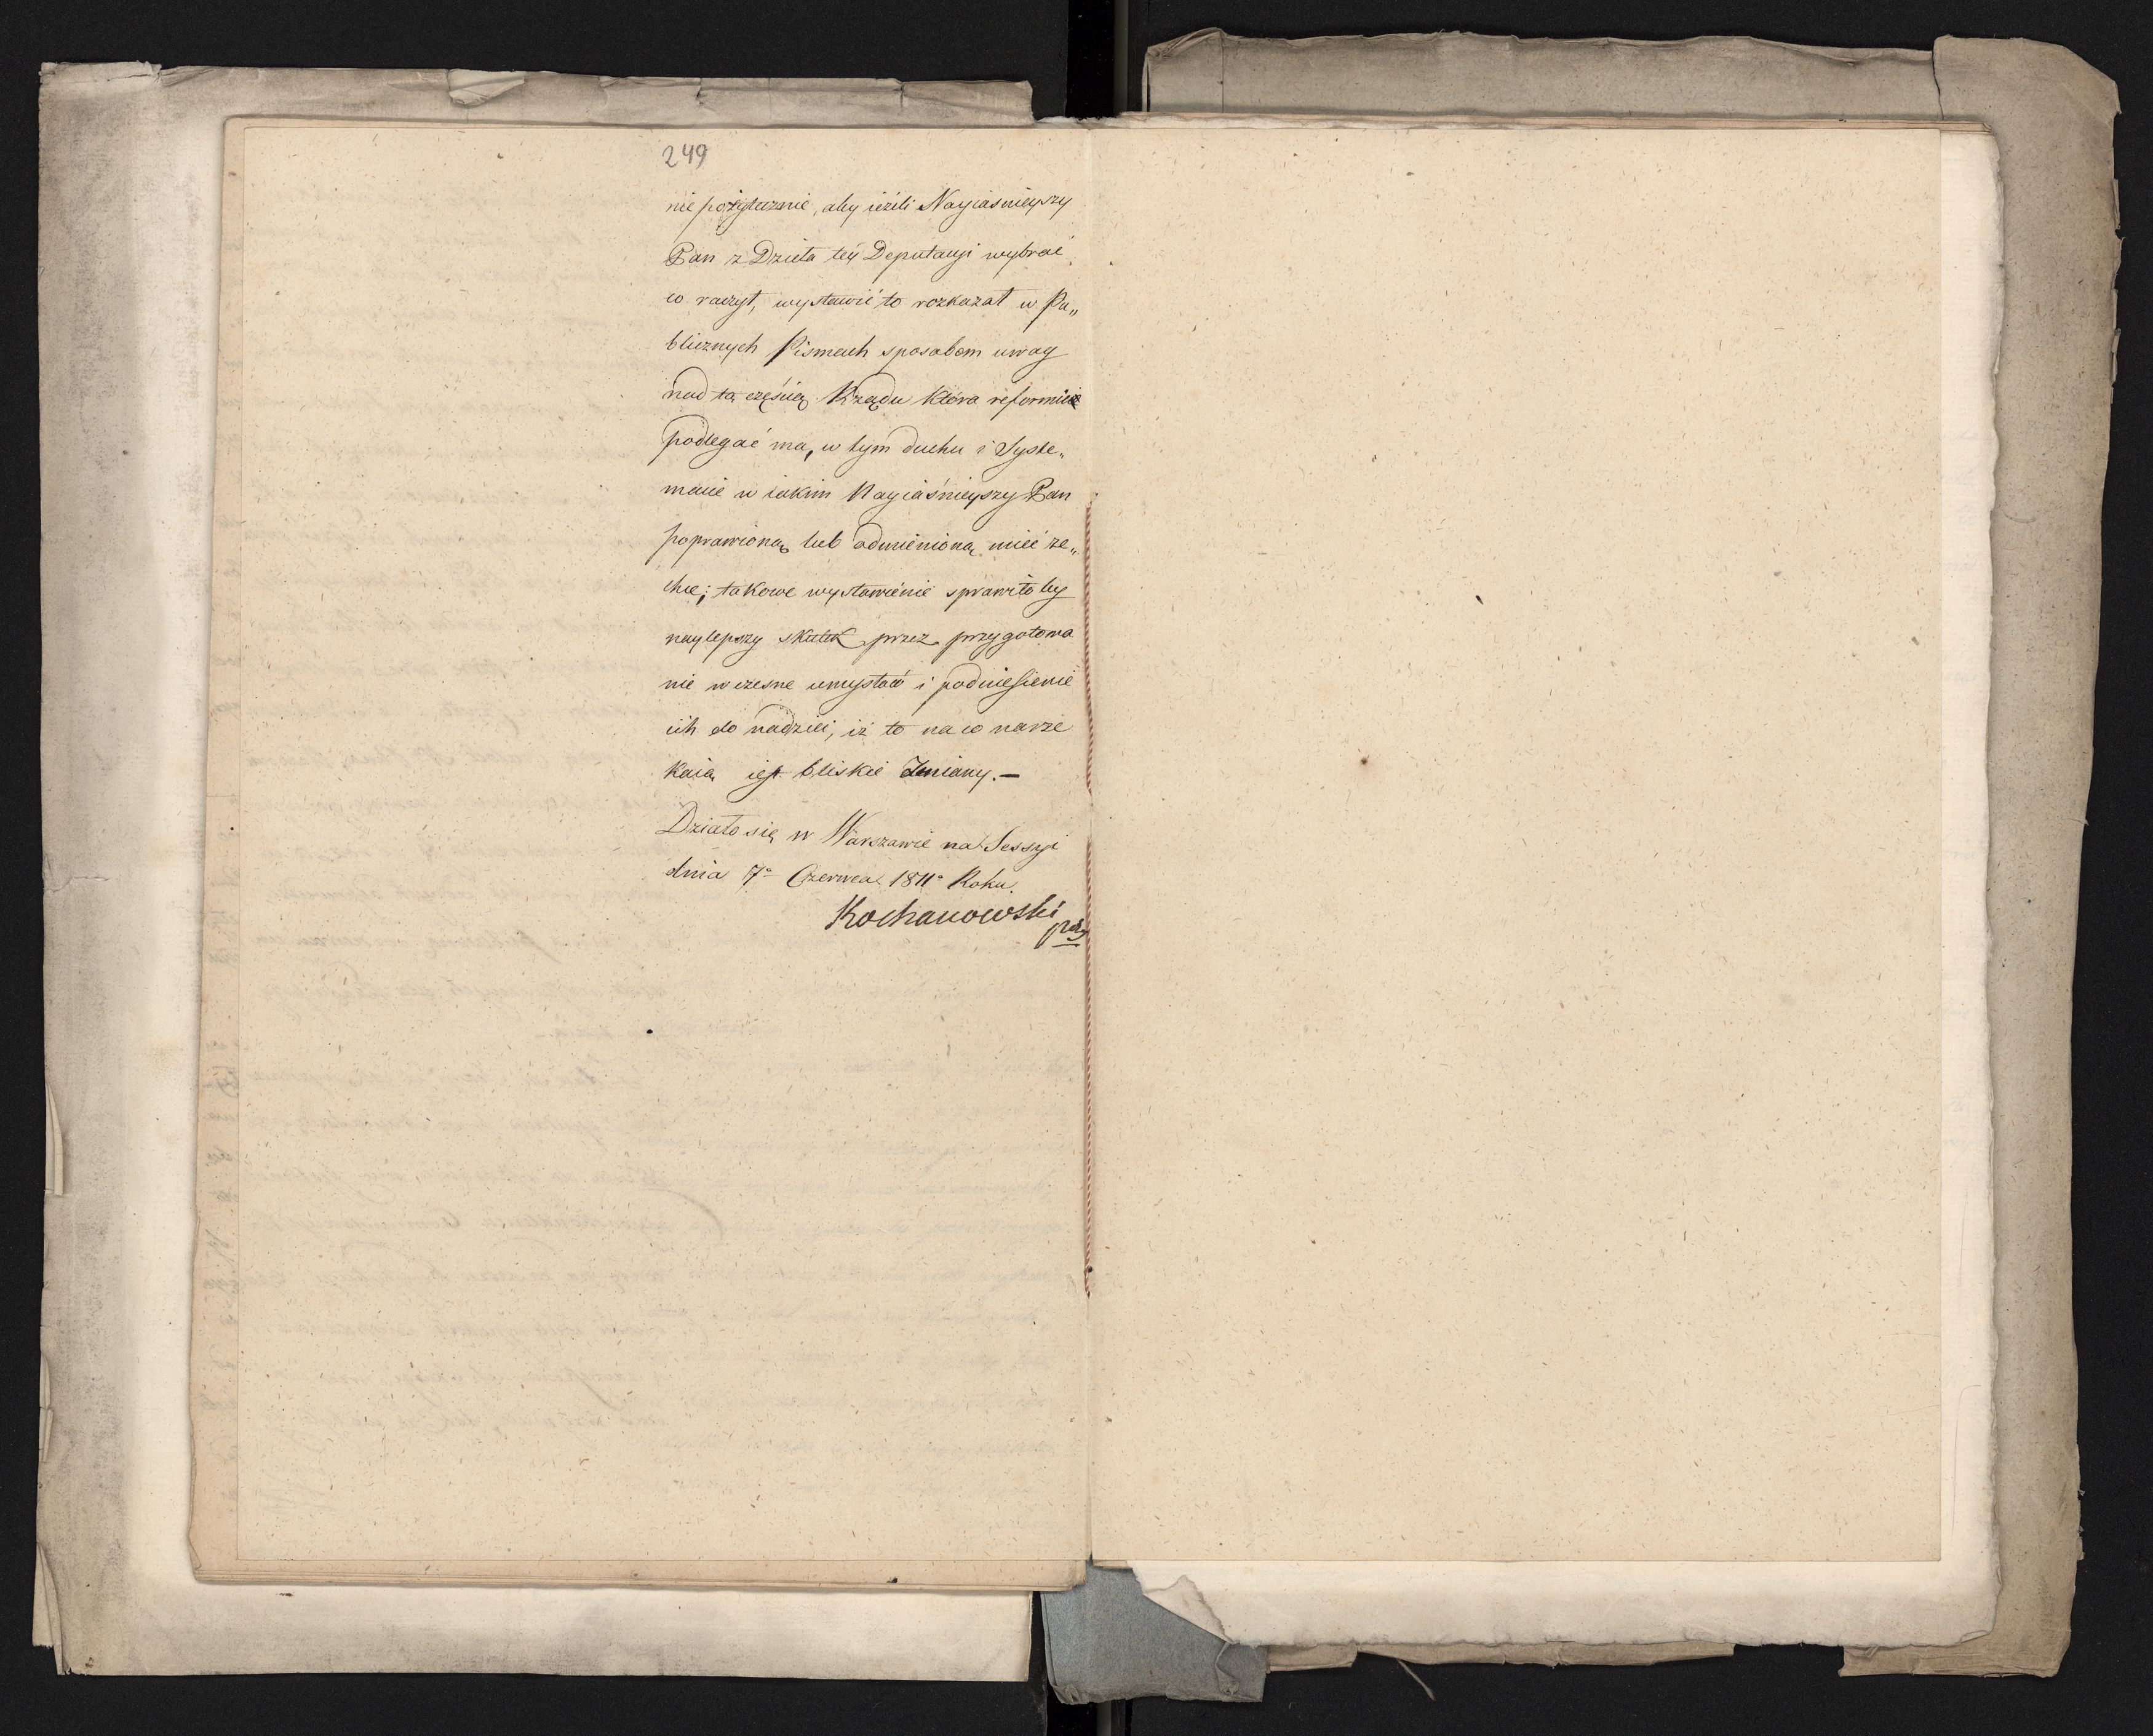 249
niepożytecznie, aby ieżeli Nayiaśnieyszy
Pan z Dzieła tey Deputacyi wybrać
co raczył, wystawić to rozkazał w Pu„
blicznych Pismach sposobem uwag
nad tą częścią Rządu która reformie
podlegać ma, w tym duchu i Syste„
macie w iakim Nayiaśnieyszy Pan
poprawioną lub odmienioną mieć ze„
chce; takowe wystawienie sprawiło by
naylepszy skutek przez przygotowa
nie wczesne umysłów i podniesienie
ich do nadziei, iż to na co narze
kaią iest bliskie Zmiany. —
Działo się w Warszawie na Sessyi
dnia 7° Czerwca 1811° Roku.
Kochanowski